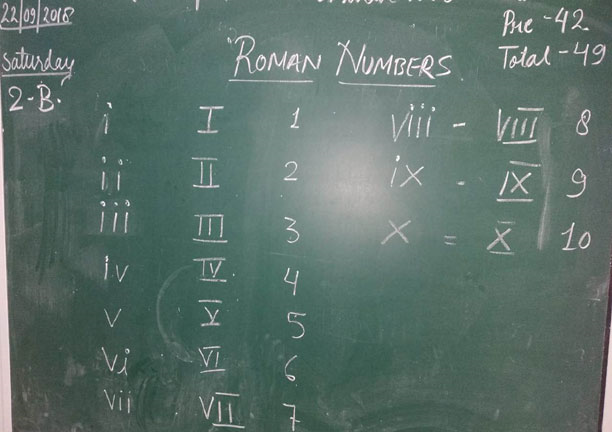 22/09/2018
Pre - 42
Total - 49
Saturday
"ROMAN NUMBERS
2-B.
i I 1
ii II 2
iii III 3
iv IV. 4
v V 5
vi VI 6
vii VII 7
viii - VIII 8
ix - IX 9
x = X 10